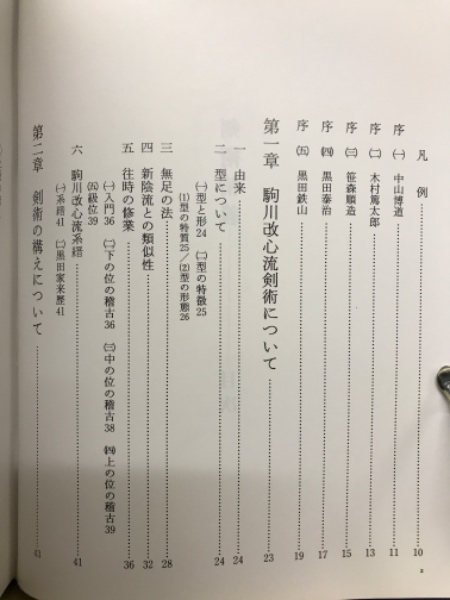 凡例 10
序 ㈠ 中山博道 11
序 ㈡ 木村篤太郎 13
序 ㈢ 笹森順造 15
序 ㈣ 黒田泰治 17
序 ㈤ 黒田鉄山 19
第一章 駒川改心流剣術について 23
一 由来 24
二 型について 24
㈠型と形24 ㈡型の特徴25
⑴型の特質25／⑵型の形態26
三 無足の法 28
四 新陰流との類似性 32
五 往時の修業 36
㈠入門36 ㈡下の位の稽古36 ㈢中の位の稽古38 ㈣上の位の稽古39
㈤級位39
六 駒川改心流系譜 41
㈠系譜41 ㈡黒田家来歴41
第二章 剣術の構えについて 41
2